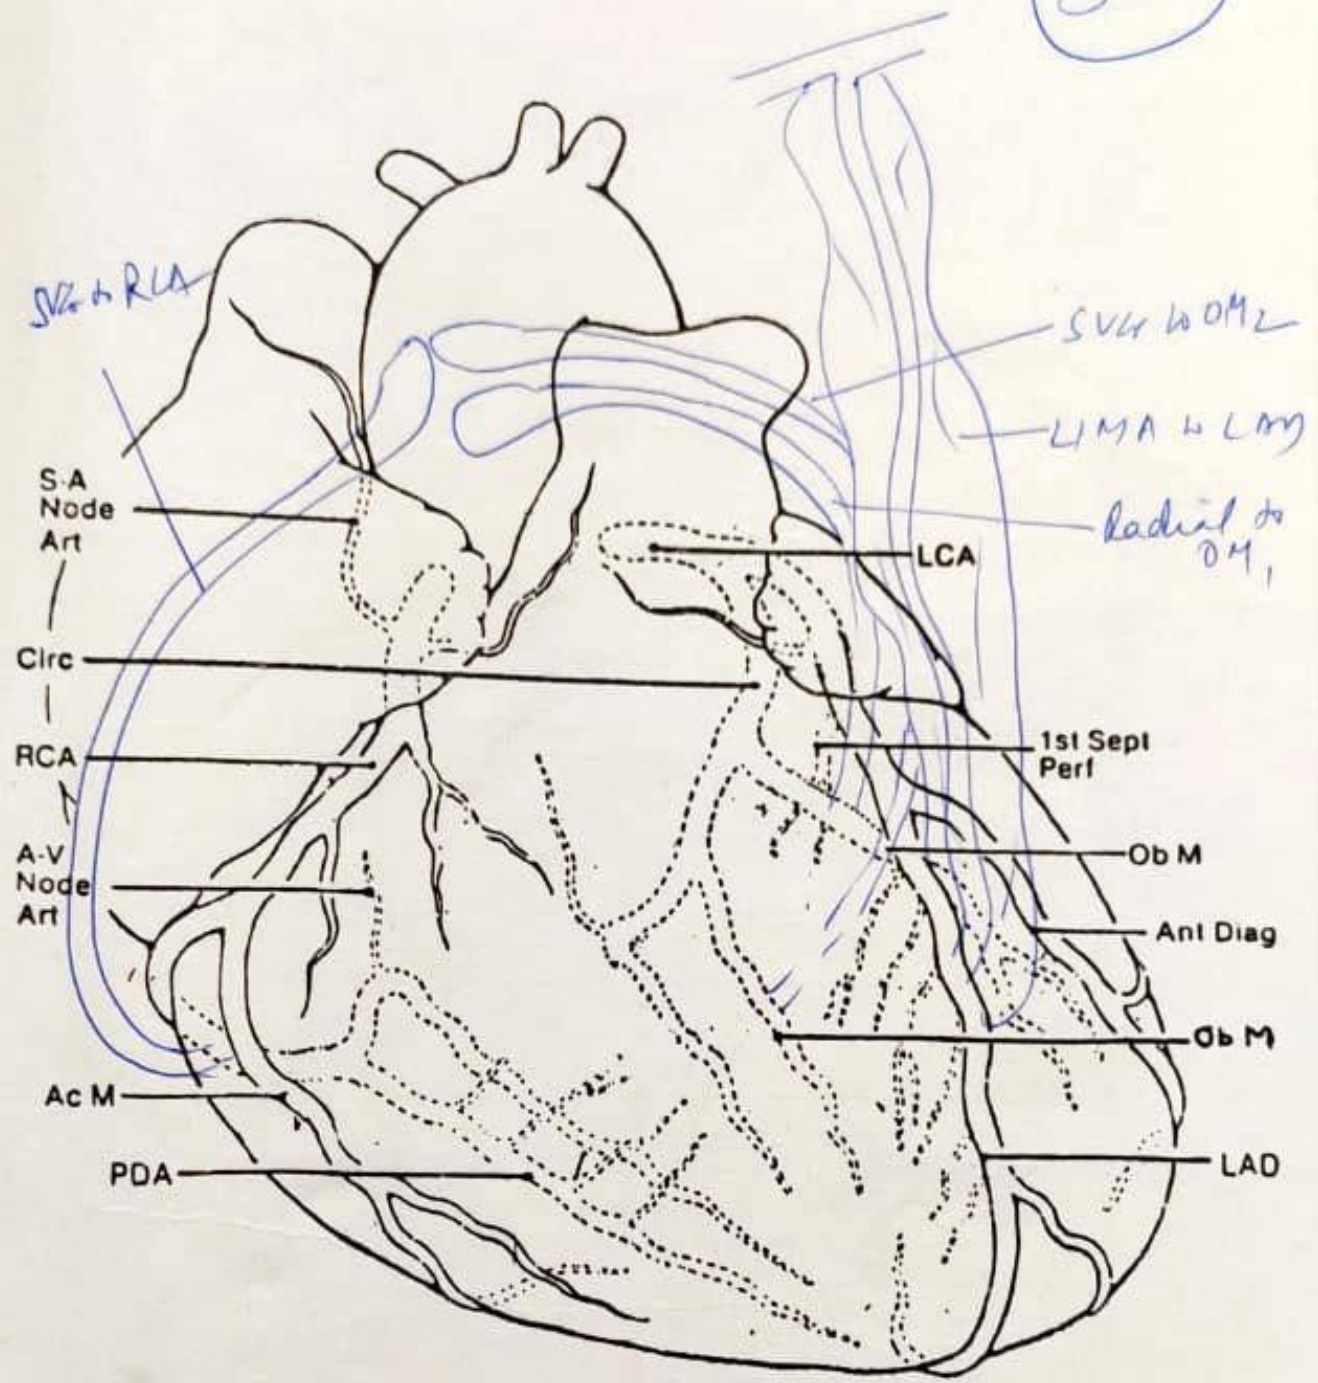 SVG to RCA
SVG to OM2
LIMA to LAD
S-A
Node
Art
Radial to
OM1
LCA
Circ
RCA
1st Sept
Perf
A-V
Node
Art
Ob M
Ant Diag
Ob M
Ac M
PDA
LAD